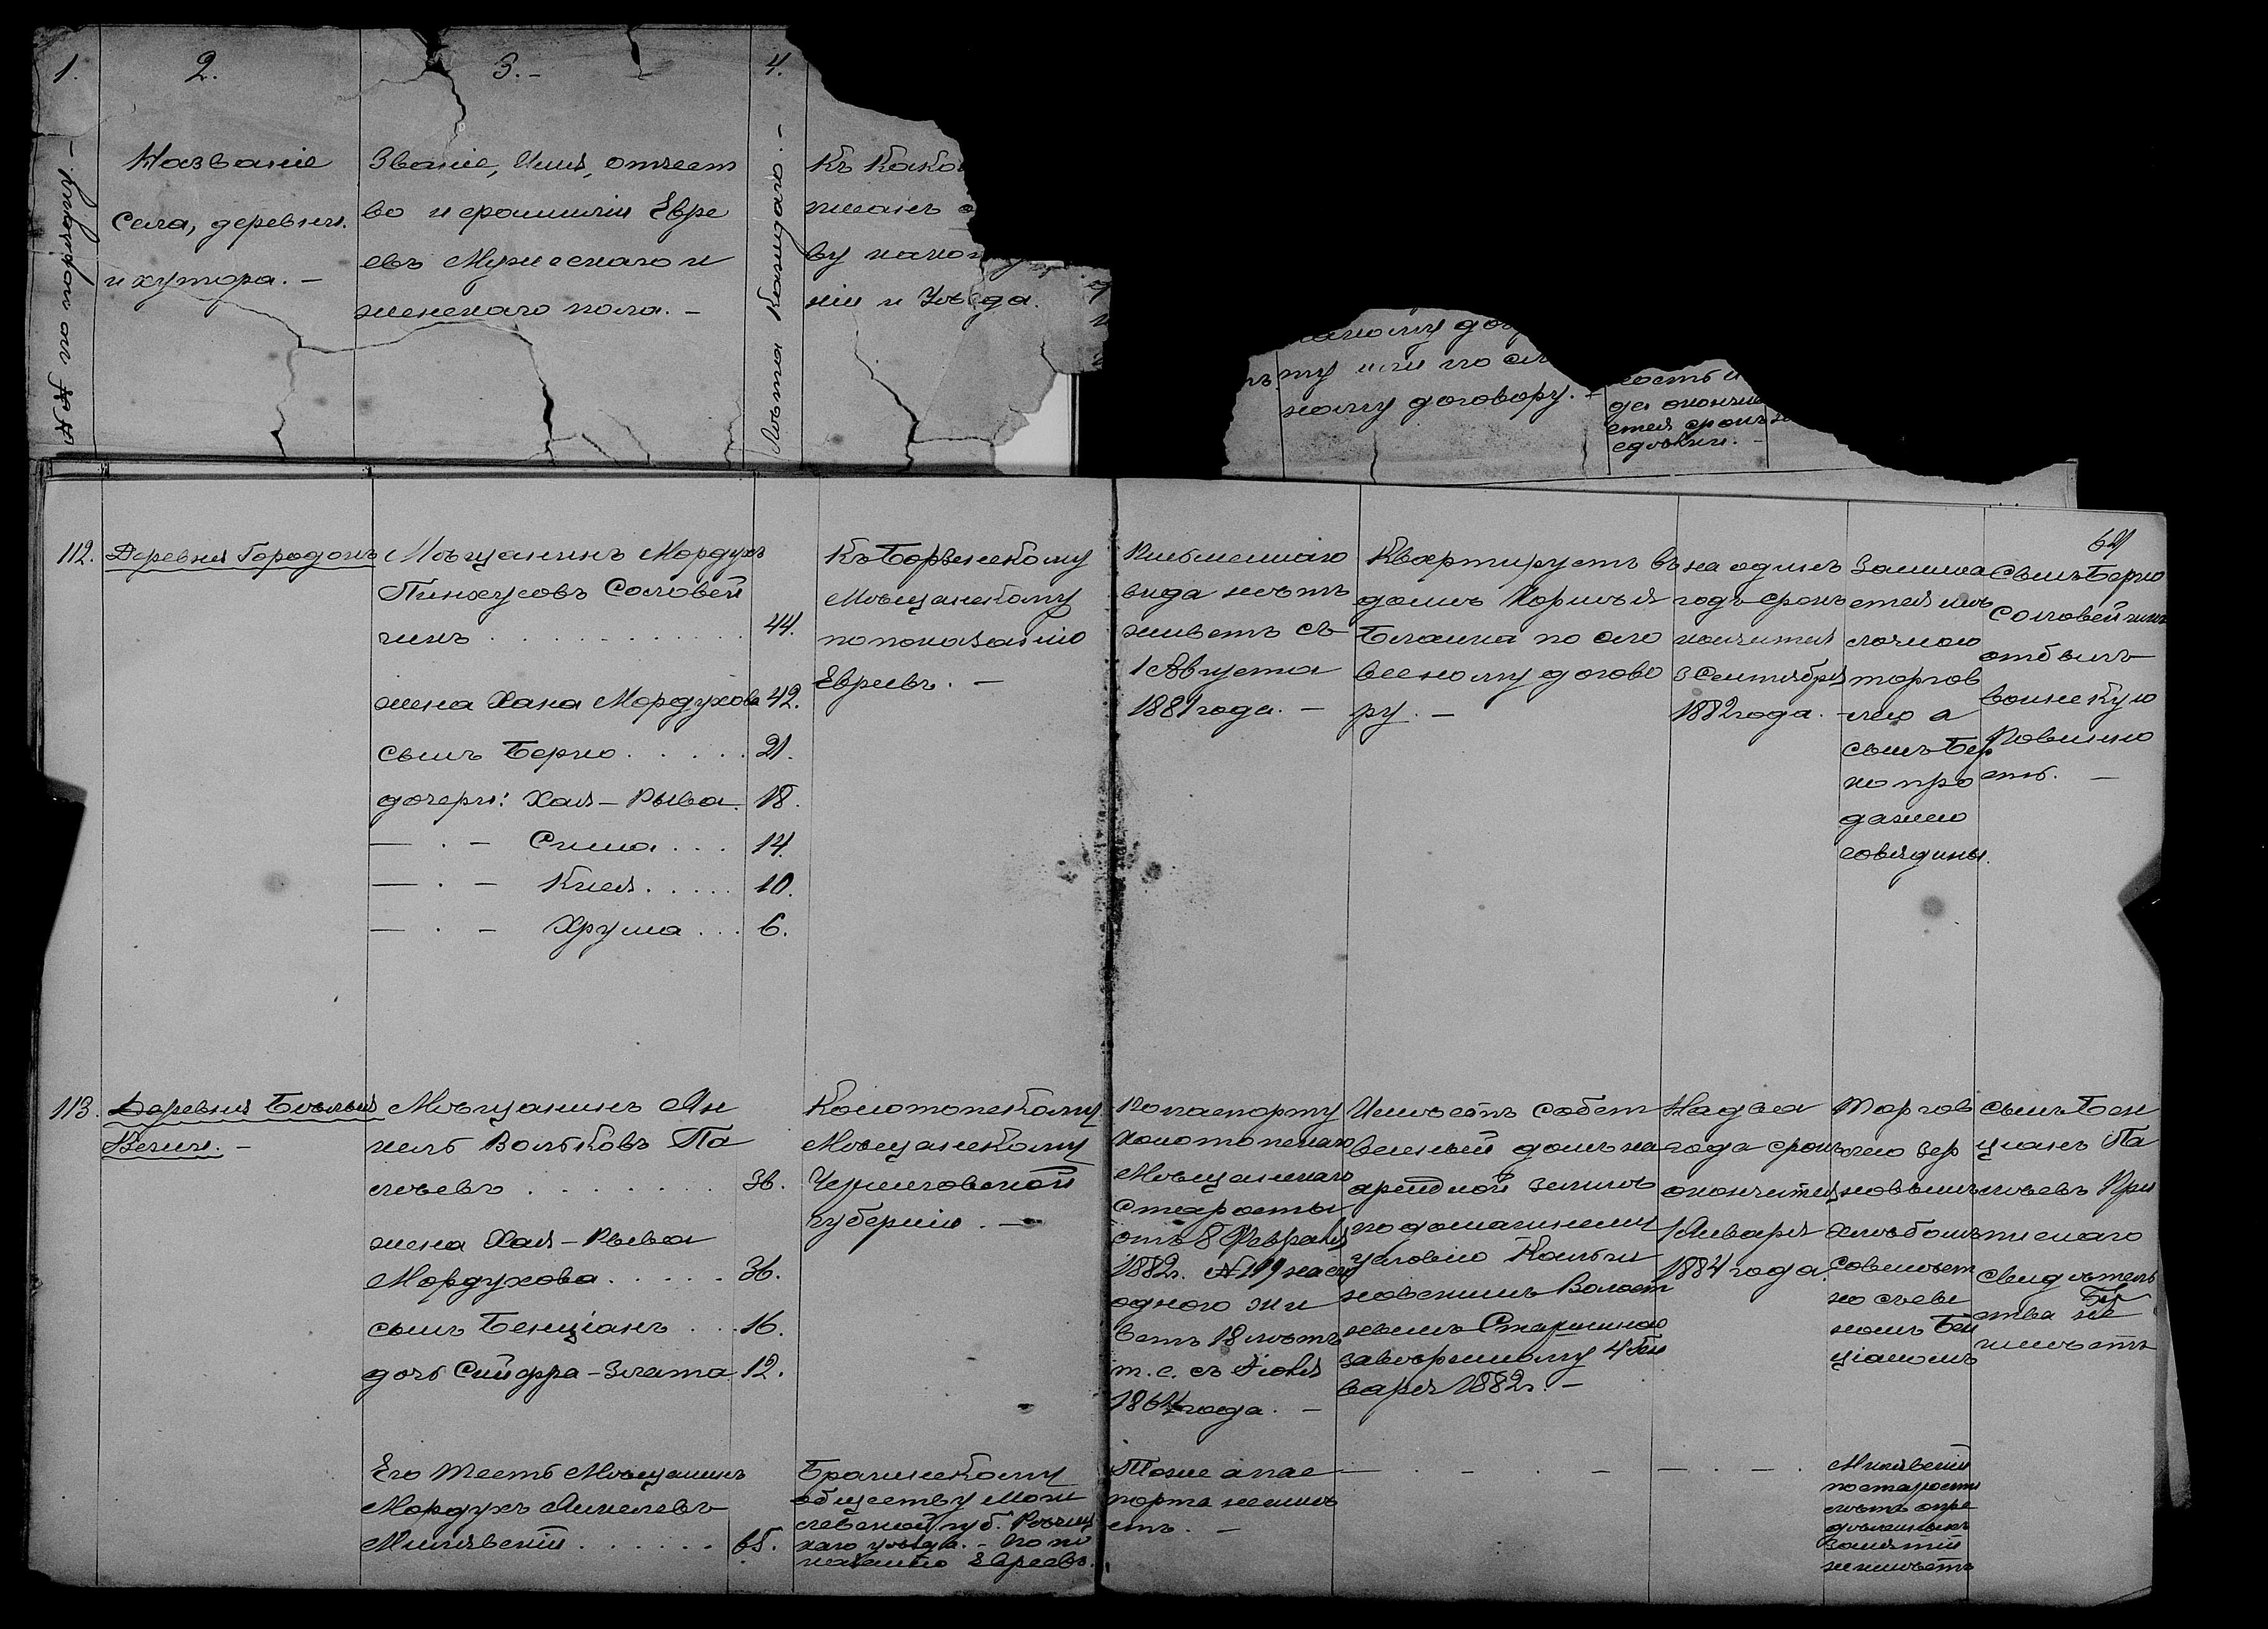 1.
2.
3.-
4.
№№ по порядку.-
Названіе
села, деревни.
и хутора.-
Званіе, Имя, отчест
во и фамилія Евре
евъ Мужескаго и
женскаго пола.-
Лѣта каждаго.-
Къ како
писанъ
ву како
ніи и Уѣзда.
ту или по сл
ному договору.-
кость и
да окончи
ется срокъ
сдѣлки.-
64
112.
Деревня Городокъ
Мѣщанинъ Мордухъ
Пинхусовъ Соловей
чикъ . . . . . . . . . . . 44.
жена Хана Мордухова 42.
сынъ Берко . . . . . 21.
дочери: Хая-Рыва. 18.
— . — Сима . . . 14.
— . — Кися . . . . . 10.
— . — Хрума . . . 6.
Къ Борзенскому
Мѣщанскому
по показанію
Евреевъ.-
Письменнаго
вида нетъ
живетъ съ
1 Августа
1881 года.-
Квартируетъ въ
домѣ Корнѣя
Бланка по сло
весному догово
ру.-
на одинъ
годъ срокъ
кончится
3 Сентября
1882 года.-
Занима
ется мѣ
лочною
торгов
лею а
сынъ Бер
ко про
дажею
говядины.
Сынъ Берко
Соловейчикъ
отбылъ
воинскую
Повинно
сть.-
113.
Деревня Бѣлыя
Вежи.-
Мѣщанинъ Ян
кель Вольковъ Па
лѣевъ . . . . . . . . 36.
жена Хая-Рыва
Мордухова . . . . . 36.
сынъ Бенціанъ . . . 16.
дочь Сиифра-Злата 12.
Конотопскому
Мѣщанскому
Черниговской
губерніи.-
По паспорту
Конотопскаго
Мѣщанскаго
Старосты
отъ 8 Февраля
1882г. №199 на его
одного жи
ветъ 18 лѣтъ
т.е. съ Іюля
1864 года.-
Имѣетъ собст
венный домъ на
арендной землѣ
по домашнему
условію
Волост
нымъ Старшиною
завѣренному 4 Ян
варя 1882г.-
На два
года срокъ
окончится
1 Января
1884 года.
Торгов
лею зер
новымъ
хлѣбомъ
совмѣст
но съ сы
номъ Бен
ціаномъ
сынъ Бен
ціанъ Па
лѣевъ При
писнаго
свидѣтель
ства не
имѣетъ
Его тесть Мѣщанинъ
Мордухъ Анкелевъ
Минявскій . . . . . . 65.
Брагинскому
обществу Моги
левской губ. Рѣчиц
каго уѣзда.- По по
казанію Евреевъ.
Тоже а пас
порта не имѣ
етъ.-
— . — . — — . — .
Минявскій
по старости
лѣтъ опре
дѣленныхъ
занятій
не имѣетъ